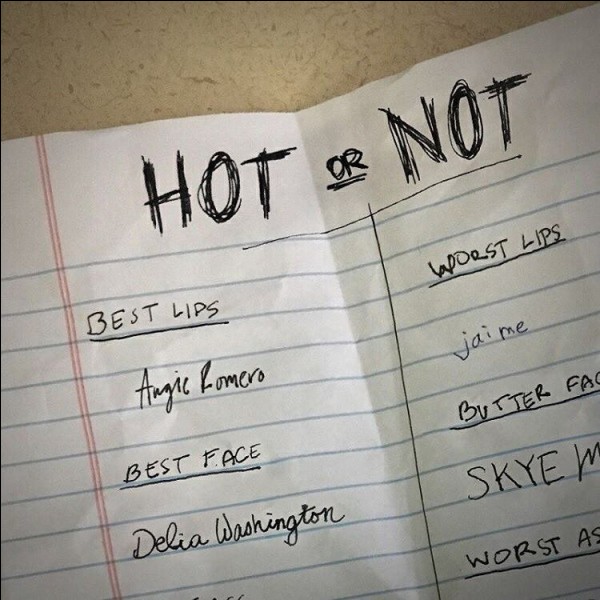 HOT OR NOT
BEST LIPS
Angie Romero
BEST FACE
Delia Washington
WORST LIPS
jaime
BUTTER
SKYE
WORST